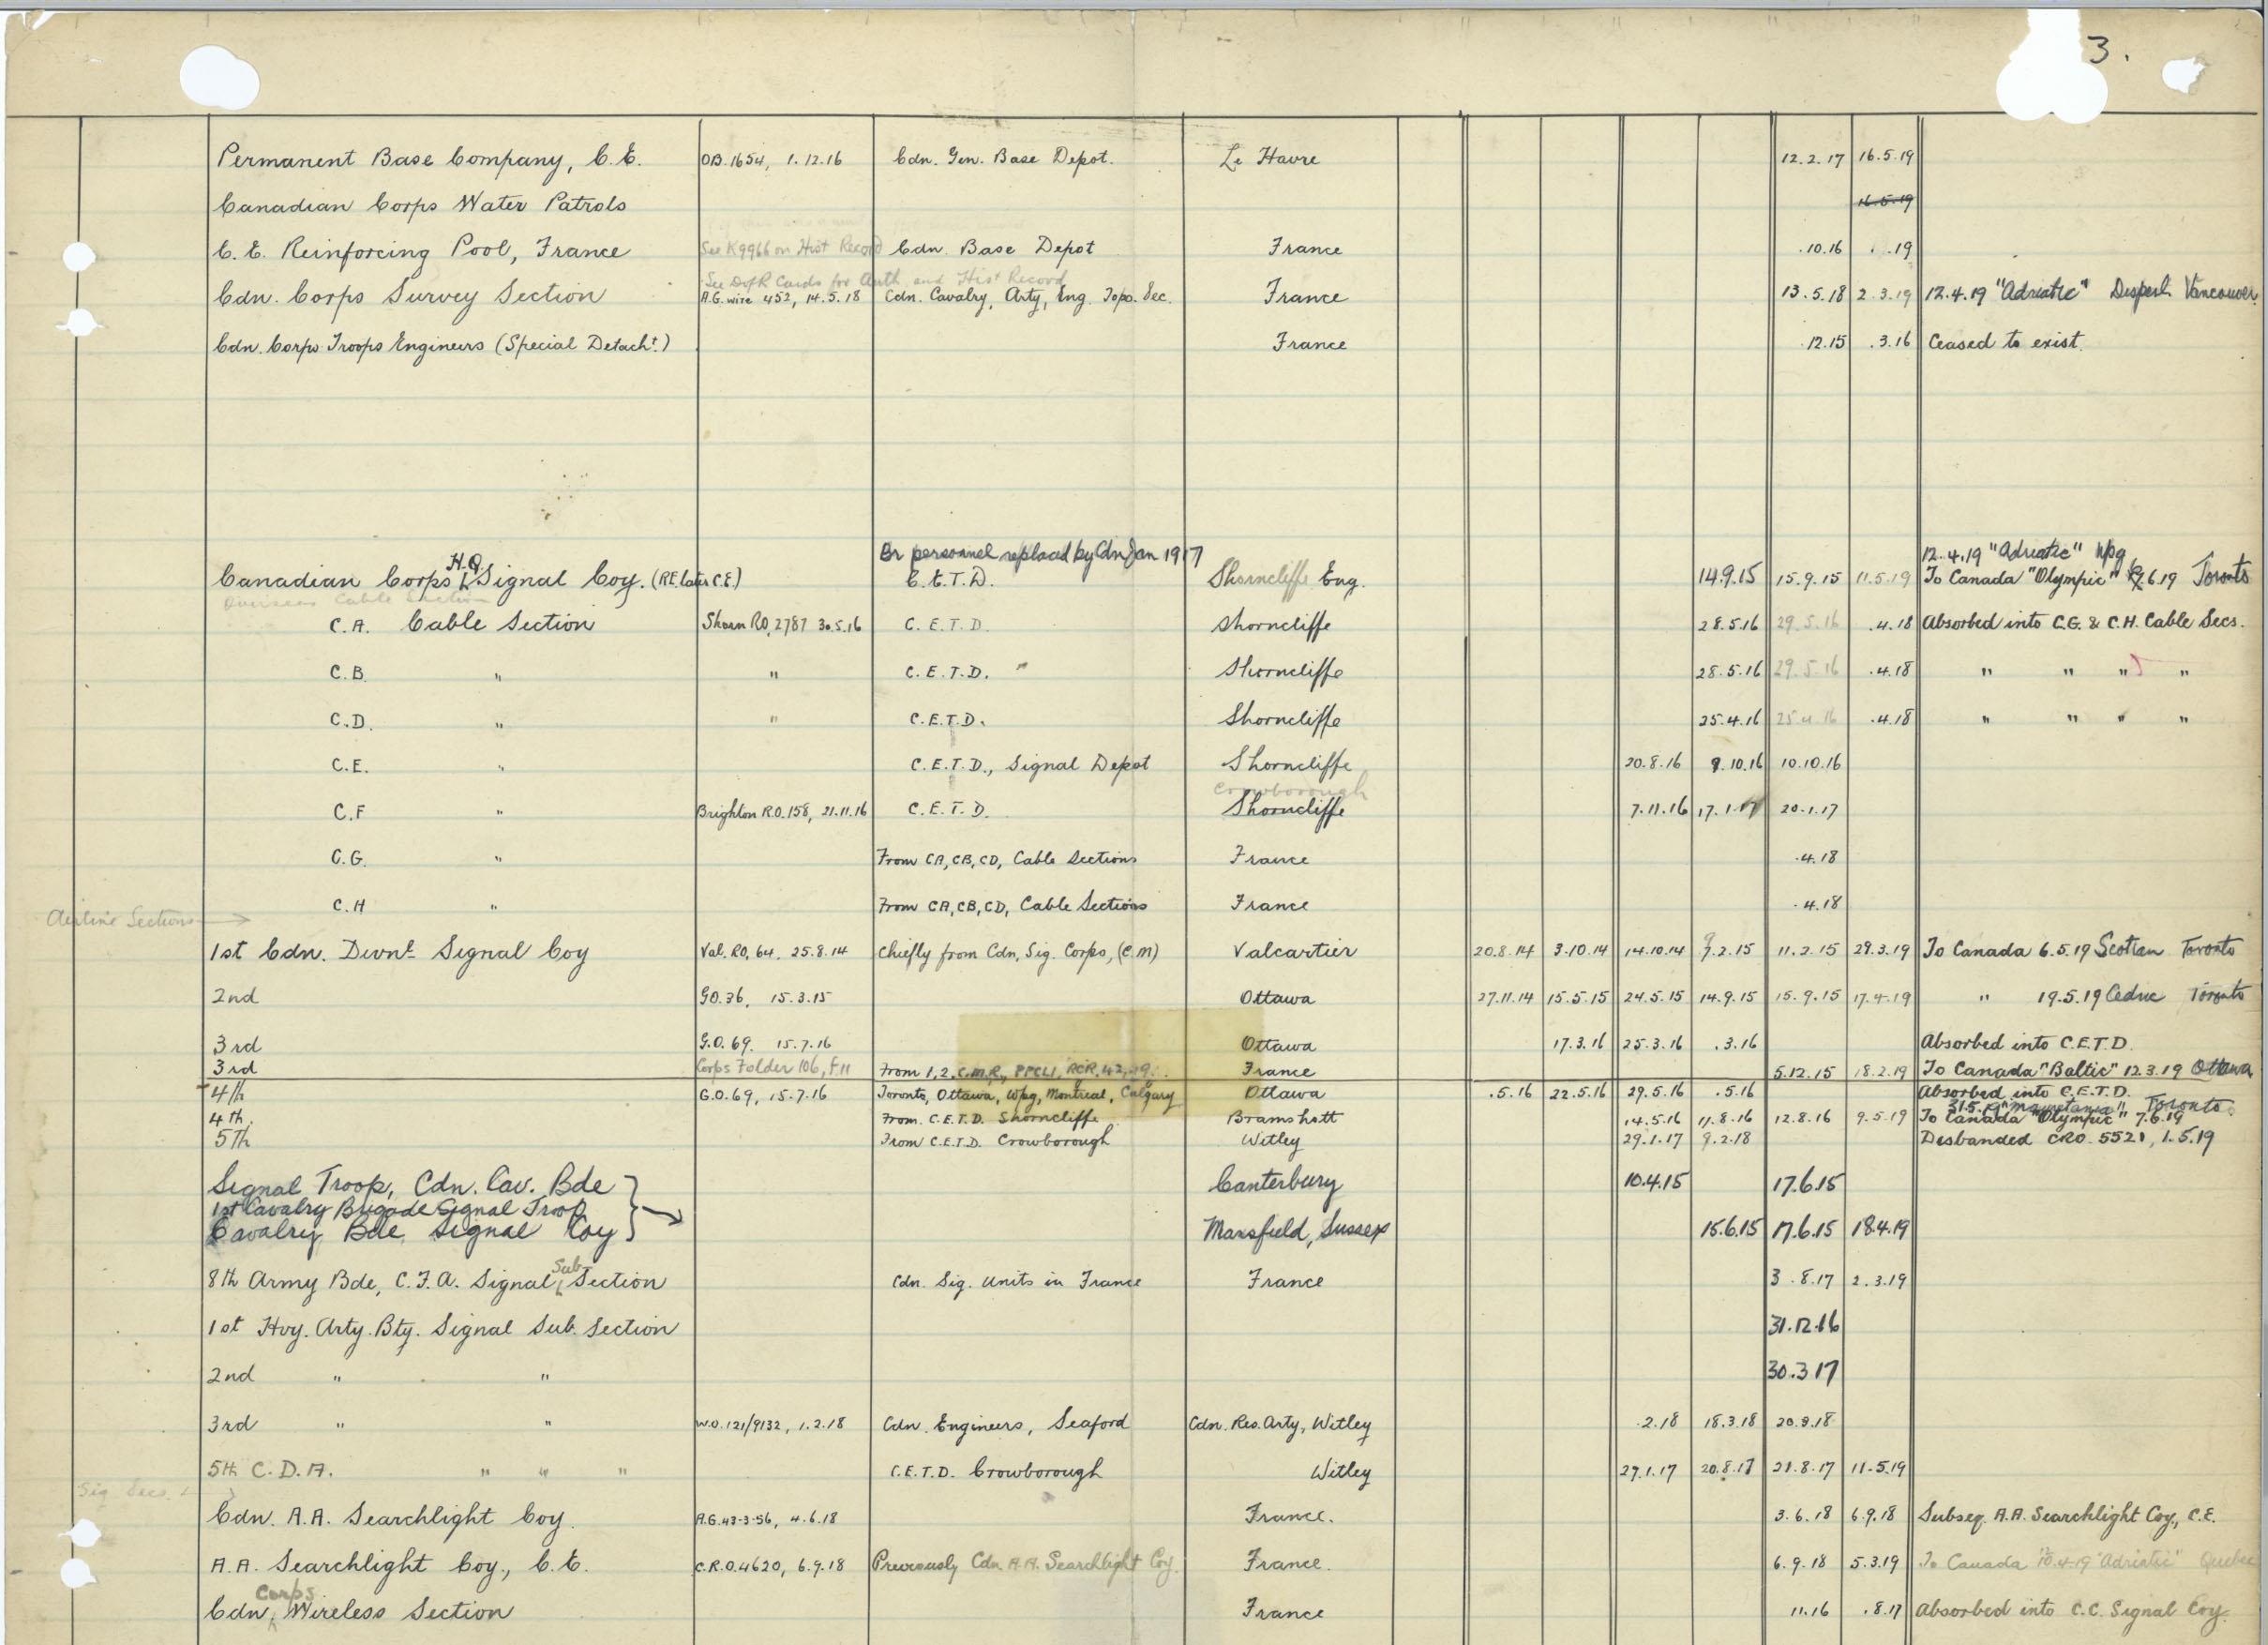 3.
Permanent Base Company, C.E. OB.1654, 1.12.16 Cdn. Gen. Base Depot. Le Havre 12.2.17 16.5.19
Canadian Corps Water Patrols 16.5.19
C.E. Reinforcing Pool, France See K9966 on Hist Record Cdn. Base Depot France .10.16 . .19
See DofR Cards for Auth and Hist Record
Cdn. Corps Survey Section A.G. wire 452, 14.5.18 Cdn. Cavalry, Arty, Eng. Topo. Sec. France 13.5.18 2.3.19 12.4.19 "Adriatic" Dispersl. Vancouver.
Cdn. Corps Troops Engineers (Special Detacht.) France .12.15 .3.16 Ceased to exist.
H.Q. Br personnel replaced by Cdn Jan 1917 12.4.19 "Adriatic" Wpg
Canadian Corps Signal Coy. (RE. later C.E) C.E.T.D. Shorncliffe Eng. 14.9.15 15.9.15 11.5.19 To Canada "Olympic" 7.6.19 Toronto
Overseas Cable Section
C.A. Cable Section Shorn RO, 2787 30.5.16 C.E.T.D. Shorncliffe 28.5.16 29.5.16 .4.18 Absorbed into C.G. & C.H. Cable Secs.
C.B. " " C.E.T.D. " Shorncliffe 28.5.16 29.5.16 .4.18 " " " "
C.D. " " C.E.T.D. Shorncliffe 25.4.16 25.4.16 .4.18 " " " "
C.E. " C.E.T.D., Signal Depot Shorncliffe 20.8.16 9.10.16 10.10.16
Crowborough
C.F " Brighton R.O. 158, 21.11.16 C.E.T.D. Shorncliffe 7.11.16 17.1.17 20.1.17
C.G. " From CA, CB, CD, Cable Sections France .4.18
C.H " From CA, CB, CD, Cable Sections France .4.18
Airline Sections
1st Cdn. Divnl. Signal Coy Val. RO, 64, 25.8.14 Chiefly from Cdn. Sig. Corps, (C.M) Valcartier 20.8.14 3.10.14 14.10.14 9.2.15 11.2.15 29.3.19 To Canada 6.5.19 Scotian Toronto
2nd GO.36, 15.3.15 Ottawa 27.11.14 15.5.15 24.5.15 14.9.15 15.9.15 17.4.19 " 19.5.19 Cedric Toronto
3rd G.O.69. 15.7.16 Ottawa 17.3.16 25.3.16 .3.16 Absorbed into C.E.T.D.
3rd Corps Folder 106, F.11 From 1, 2, C.M.R, PPCLI, RCR, 42, 49. France 5.12.15 18.2.19 To Canada "Baltic" 12.3.19 Ottawa
4th G.O.69, 15.7.16 Toronto, Ottawa, Wpg, Montreal, Calgary Ottawa .5.16 22.5.16 29.5.16 .5.16 Absorbed into C.E.T.D.
31.5.19 "Mauretania" Toronto
4th. From C.E.T.D. Shorncliffe Bramshott 14.5.16 11.8.16 12.8.16 9.5.19 To Canada "Olympic" 7.6.19
5th From C.E.T.D. Crowborough Witley 29.1.17 9.2.18 Desbanded CRO. 5521, 1.5.19
Signal Troop, Cdn. Cav. Bde Canterbury 10.4.15 17.6.15
1st Cavalry Brigade Signal Troop
Cavalry Bde Signal Coy Maresfield, Sussex 15.6.15 17.6.15 18.4.19
8th Army Bde, C.F.A. Signal Sub Section Cdn. Sig. Units in France France 3.8.17 2.3.19
1st Hvy. Arty. Bty. Signal Sub. Section 31.12.16
2nd " " 30.3.17
3rd " " W.O.121/9132, 1.2.18 Cdn. Engineers, Seaford Cdn. Res. Arty, Witley .2.18 18.3.18 20.3.18
5th C.D.A. " " " C.E.T.D. Crowborough Witley 29.1.17 20.8.17 21.8.17 11.5.19
Sig. Secs.
Cdn. A.A. Searchlight Coy. A.G.43-3-56, 4.6.18 France. 3.6.18 6.9.18 Subseq. A.A. Searchlight Coy., C.E.
A.A. Searchlight Coy., C.E. C.R.O.4620, 6.9.18 Previously Cdn. A.A. Searchlight Coy. France. 6.9.18 5.3.19 To Canada 10.4.19 "Adriatic" Quebec
Cdn. Corps Wireless Section France 11.16 .8.17 Absorbed into C.C. Signal Coy.